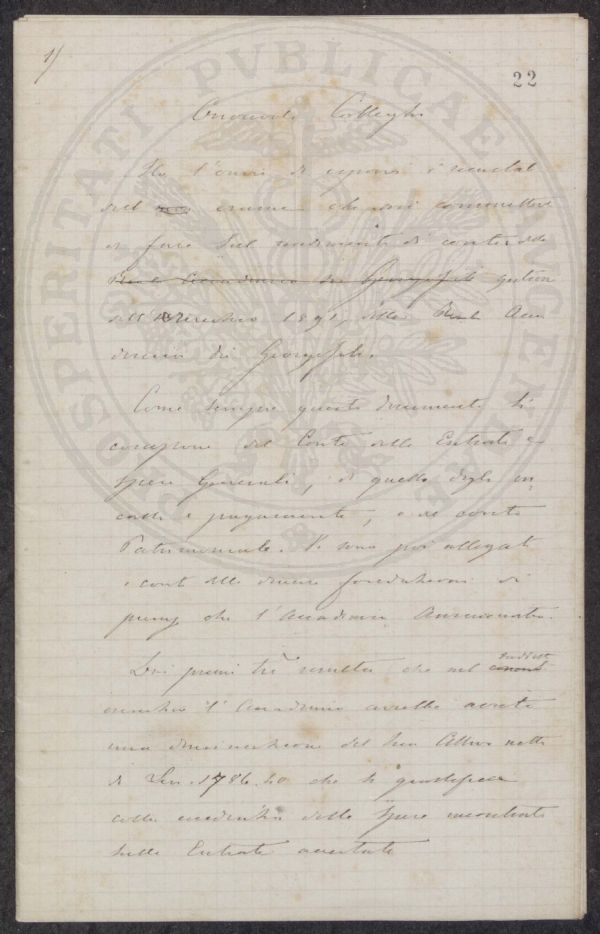 1)
22
Onorevoli Colleghi
Ho l'onore di esporvi i resultati
dell' esame che mi commetteste
di fare sul rendimento di conti della
Reale Accademia dei Georgofili gestione
dell'Esercizio 1891, della Reale Acca
demia dei Georgofili.
Come sempre questo documento si
compone del Conto delle Entrate e
Spese Generali, di quello degli in
cassi e pagamenti, e del conto
Patrimoniale. Vi sono poi allegati
i conti delle diverse fondazioni di
premj che l'Accademia Amministra.
Dai primi tre resulta che nel suddetto
esercizio l'Accademia avrebbe avuto
una diminuzione del suo Attivo netto
di Lire 1786.20 che si giustifica
colla eccedenza delle Spese
sulle Entrate accertate
PROSPERITATI PVBLICAE AVGENDAE